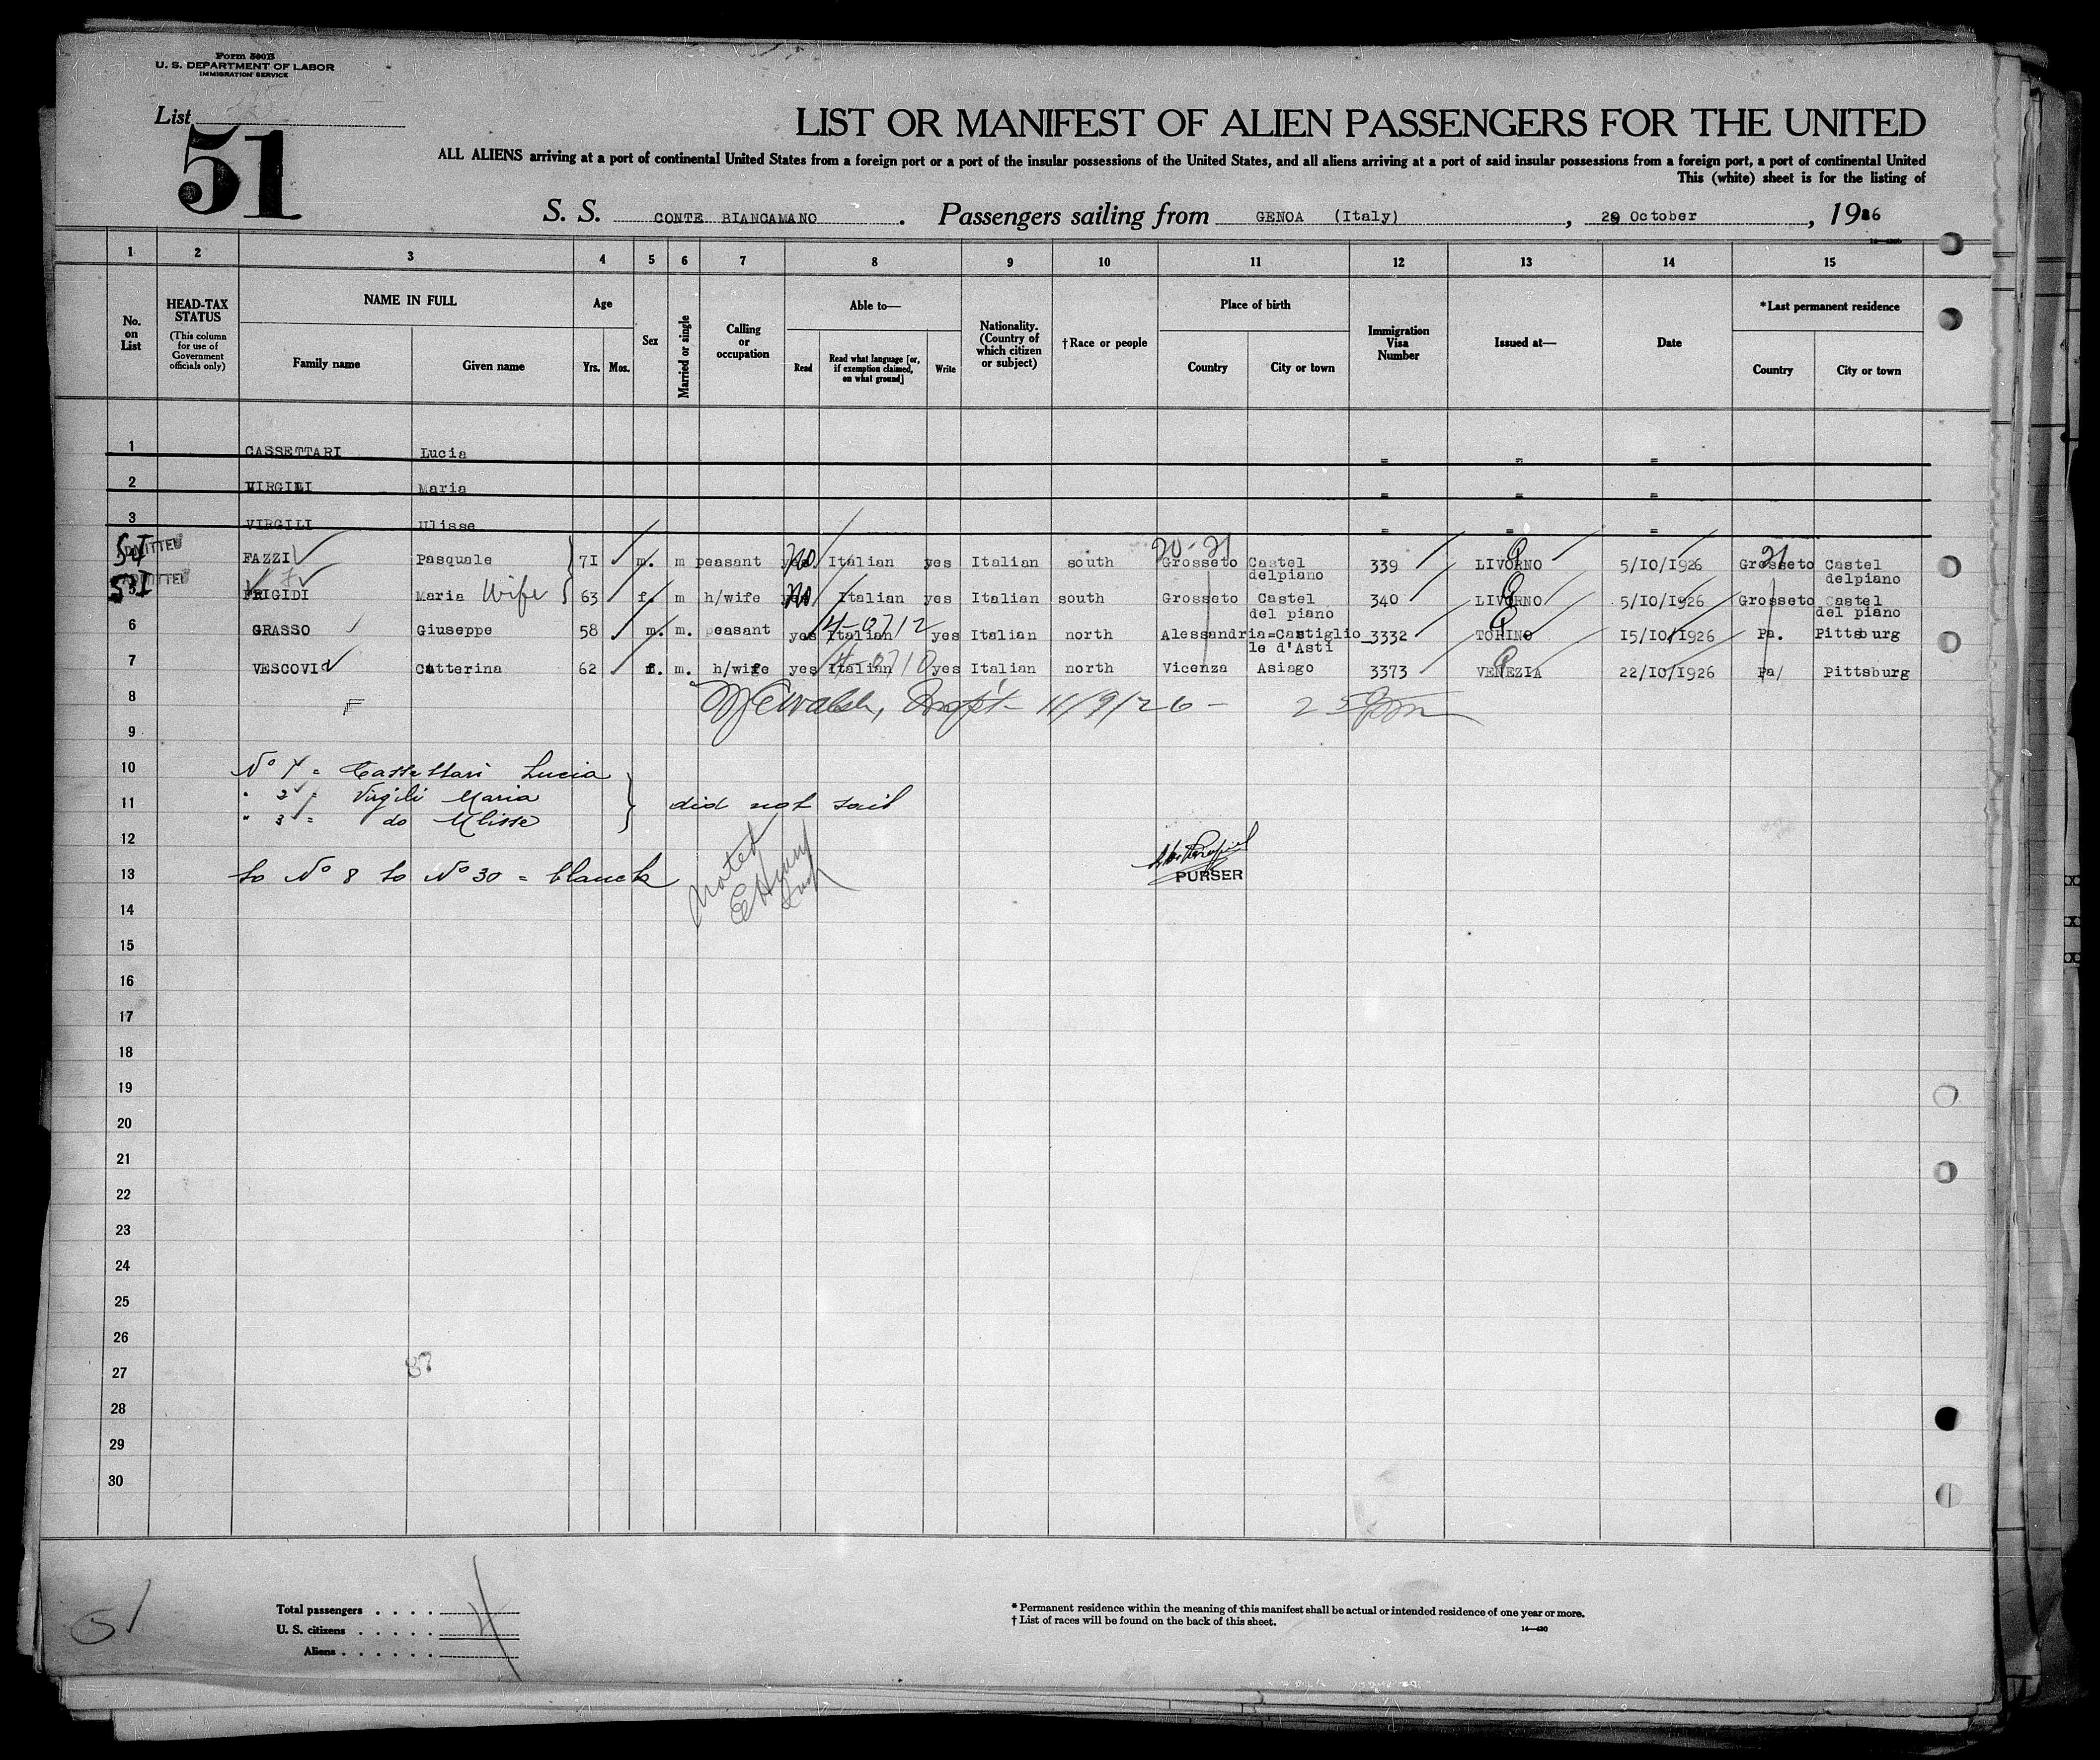 Form 500B
U. S. DEPARTMENT OF LABOR
IMMIGRATION SERVICE
List
51
LIST OR MANIFEST OF ALIEN PASSENGERS FOR THE UNITED
ALL ALIENS arriving at a port of continental United States from a foreign port or a port of the insular possessions of the United States, and all aliens arriving at a port of said insular possessions from a foreign port, a port of continental United
This (white) sheet is for the listing of
S. S. CONTE BIANCAMANO . Passengers sailing from GENOA (Italy) , 29 October , 1926
1 2 3 4 5 6 7 8 9 10 11 12 13 14 15
No. on List
HEAD-TAX STATUS (This column for use of Government officials only)
NAME IN FULL
Family name Given name
Age
Yrs. Mos.
Sex
Married or single
Calling or occupation
Able to—
Read Read what language [or, if exemption claimed, on what ground] Write
Nationality. (Country of which citizen or subject)
†Race or people
Place of birth
Country City or town
Immigration Visa Number
Issued at—
Date
*Last permanent residence
Country City or town
1 CASSETTARI Lucia = = =
2 VIRGILI Maria = = =
3 VIRGILI Ulisse = = =
SI ADMITTED FAZZI Pasquale 71 m. m peasant no Italian yes Italian south 20-21 Grosseto Castel delpiano 339 LIVORNO 5/10/1926 21 Grosseto Castel delpiano
SI ADMITTED FRIGIDI Maria Wife 63 f. m h/wife no Italian yes Italian south Grosseto Castel del piano 340 LIVORNO 5/10/1926 Grosseto Castel del piano
6 GRASSO Giuseppe 58 m. m. peasant yes Italian yes Italian north Alessandria=Castiglio le d'Asti 3332 TORINO 15/10/1926 Pa. Pittsburg
7 VESCOVI Catterina 62 f. m. h/wife yes Italian yes Italian north Vicenza Asiago 3373 VENEZIA 22/10/1926 Pa/ Pittsburg
8 F 11/9/26 -
9
10 No 1 = Cassettari Lucia
11 " 2 = Virgili Maria did not sail
" 3 = do Ulisse
12 Noted
13 to No 8 to No 30 = blanck
PURSER
14
15
16
17
18
19
20
21
22
23
24
25
26
27 87
28
29
30
51
Total passengers . . . .
U. S. citizens . . . . . 4
Aliens . . . . . .
* Permanent residence within the meaning of this manifest shall be actual or intended residence of one year or more.
† List of races will be found on the back of this sheet.
14—430